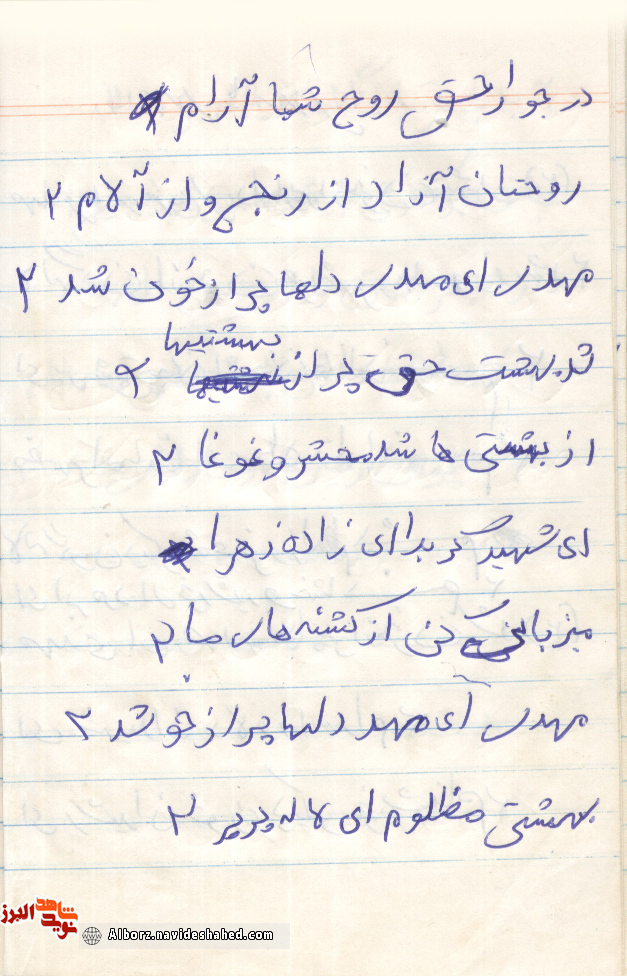 در جوار حق روح شما آرام
روحتان آزاد از رنج و از آلام ۲
مهدی ای مهدی دلها پر از خون شد ۲
بهشتیها
شد بهشت حق پر از ۲
از بهشتی ها شد محشر و غوغا ۲
ای شهید کربلا ای زاده زهرا
میزبانی کن از کشته های ما ۲
مهدی ای مهد دلها پر از خو شد ۲
بهشتی مظلوم ای لاله پرپر ۲
شاهد
نوید
البرز
Alborz.navideshahed.com